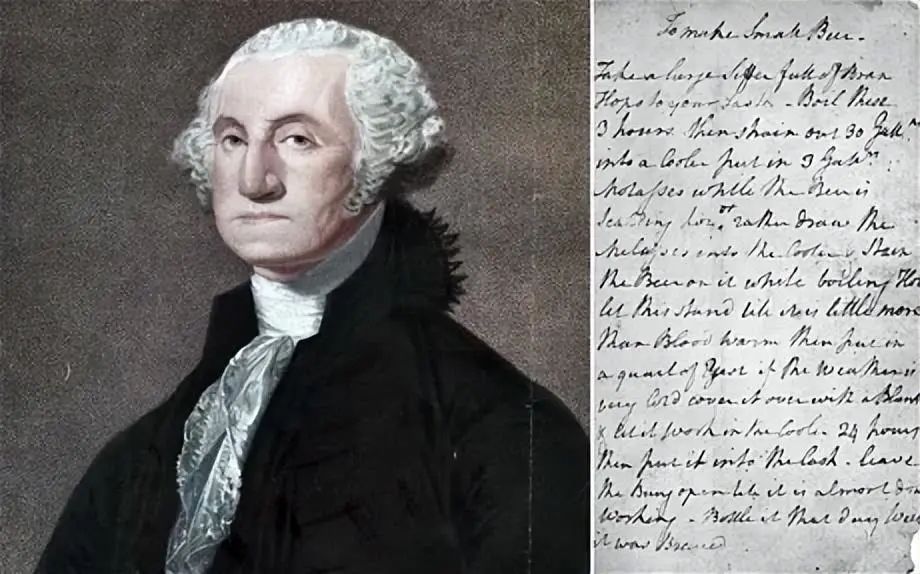 To make Small Beer -
Take a large Siffer full of Bran
Hops to your Taste - Boil these
3 hours. then strain out 30 Gallns
into a Cooler put in 3 Gallns
Molasses while the Beer is
Scalding hot or rather draw the
Molasses into the Cooler & Strain
the Beer on it while boiling Hot
let this stand till it is little more
than Blood warm then put in
a quart of Yest if the weather is
very Cold cover it over with a Blank
& let it work in the Cooler 24 hours
then put it into the Cask - leave
the Bung open till it is almost do
working - Bottle it that day Week
it was Brewed